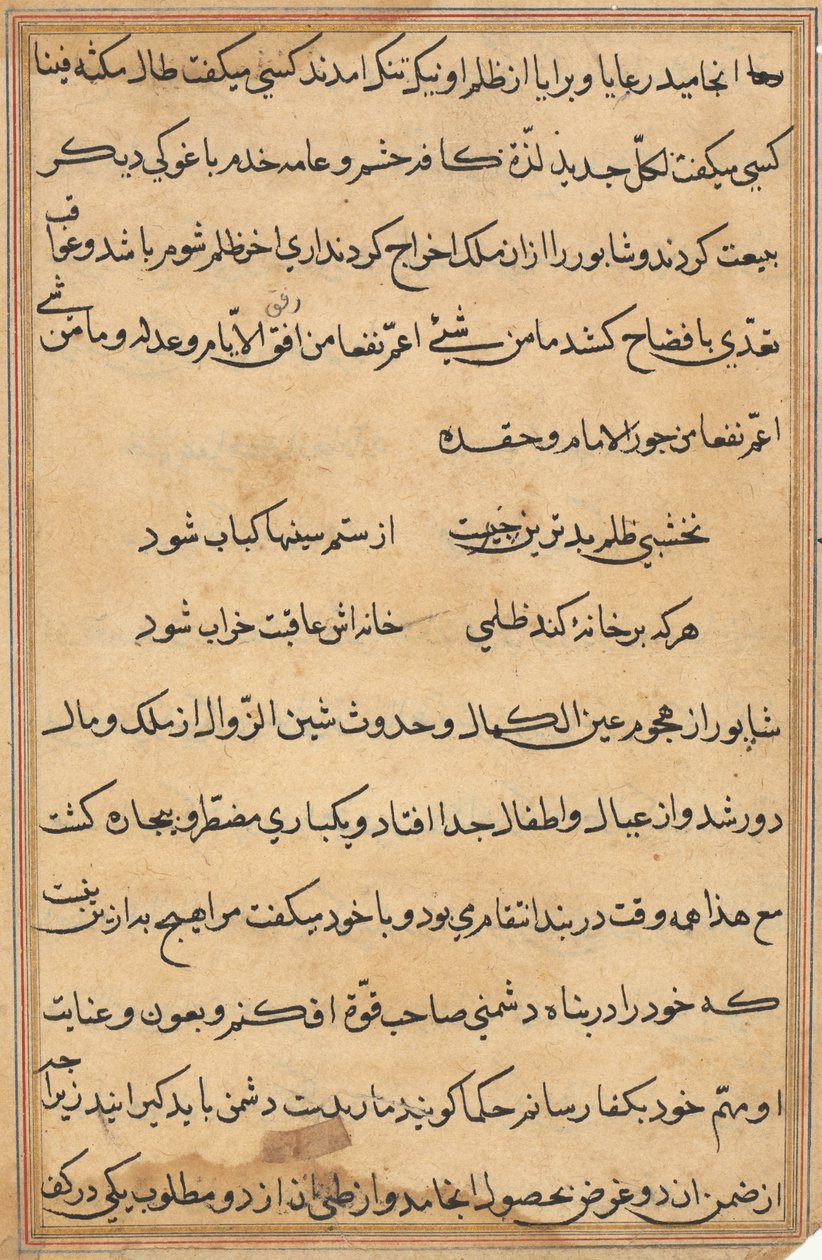 انجامید رعایا و برایا از ظلم او نیک تنک امدند کسی میکفت طال مکثه فینا
کسی میکفت لکلّ جدیذ لذّة کافه حشم و عامه خدم با غوکی دیکر
بیعت کردند و شابور را ازان ملک اخراج کردند اری اخر ظلم شوم باشد و عواقب
تعدّی بافضاح کشد ما من شیٔ اعمّ نفعا من افق رفق الایّام و عدله و ما من شی
اعمّ نفعا من جور الامام و حقده
نخشبی ظلم بدترین چیزیست از ستم سینها کباب شود
هرکه بر خانۀ کند ظلمی خانه‌اش عاقبت خراب شود
شاپور از هجوم عین الکمال و حدوث شین الزّوال از ملک و مال
دور شد و از عیال و اطفال جدا افتاد و یکباری مضطر و بیجاره کشت
مع هذا همه وقت در بند انتقام می بود و با خود میکفت مرا هیج به ازین نیست
که خود را در بناه دشمنی صاحب قوّة افکنم و بعون و عنایت
او مهمّ خود بکفا رسانم حکما کویند مار بدست دشمن باید کیرانید زیراجه
از ضمن ان دو غرض بحصول انجامد و از طی ان از دو مطلوب یکی در کف